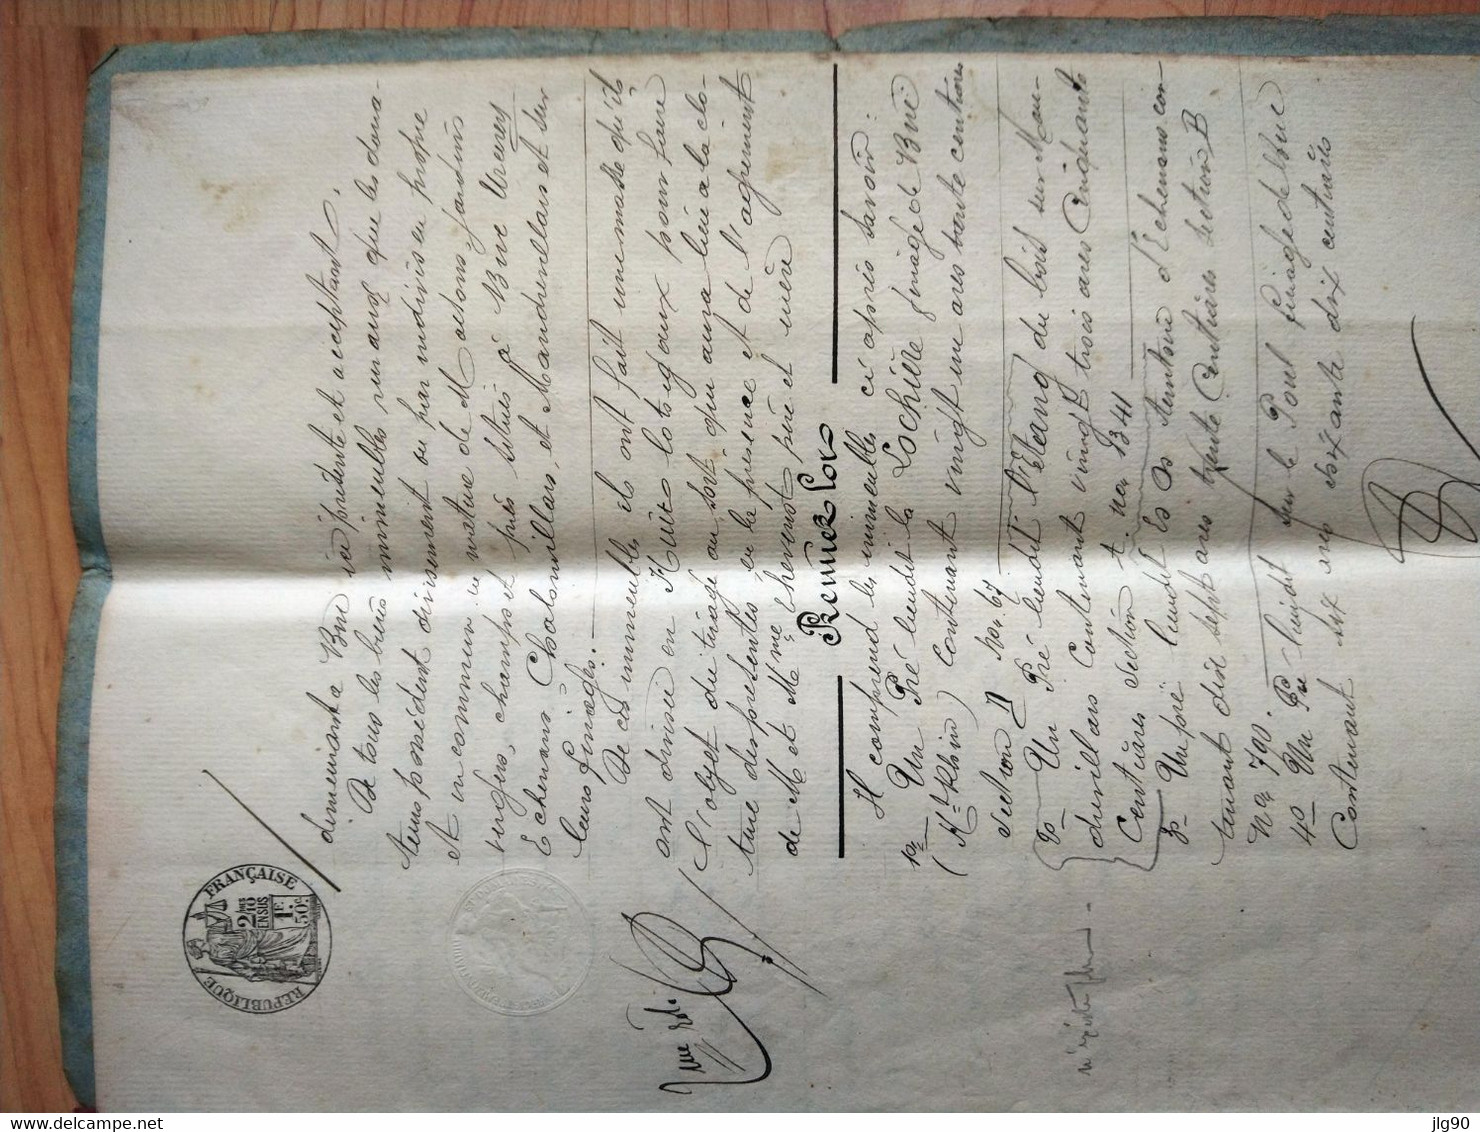 RÉPUBLIQUE FRANÇAISE
2/10 EN SUS
1F. 50c.
demeurant a Bue ici présente et acceptant.
De tous les biens immeubles ruraux que les dona-
teurs possédent divisement ou par indivis en propre
et en commun en nature de Maisons, jardins
vergers, champs et prés situés à Bue Urcerey
Echenans Chalonvillars, et Mandrevillars et sur
leurs finages.
De ces immeubles ils ont fait une masse qu'ils
ont divisée en Huit lots égaux pour faire
l'objet du tirage au sort qui aura lieu a la clo-
ture des presentes en la présence et de l'agrément
de M et Mme Chevenot père et mère
Premier Lot
Il comprend les immeubles ci après savoir:
1º Un Pré lieudit la Lochière finage de Bue
(Ht Rhin) Contenant vingt un ares trente centiares
Section D No. 67
2º Un Pré lieudit l'Etang du bois sur Man-
drevillars Contenant vingt trois ares Cinquante
Centiares Section no. 1341
3º Un pré lieudit Es As territoire d'Echenans con-
tenant dix sept ares trente Centiares Section B
No. 790.
4º Un Pré lieudit sur le Pont finage de Bue
Contenant six ares soixante dix centiares
n'existe plus -
jlg90
www.delcampe.net